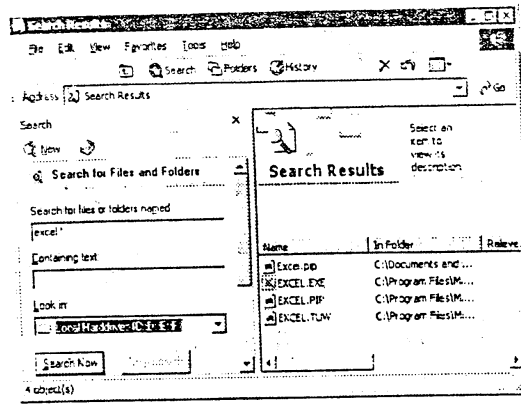 Search Results
File Edit View Favorites Tools Help
Search Folders History
Address Search Results Go
Search
New
Search for Files and Folders
Search for files or folders named
excel.*
Containing text
Look in:
Local Harddrives (C:D:E:F:)
Search Now
Search Results
Select an
item to
view its
description.
Name In Folder Releva
Excel.pip C:\Documents and ...
EXCEL.EXE C:\Program Files\M...
EXCEL.PIP C:\Program Files\M...
EXCEL.TUW C:\Program Files\M...
4 object(s)